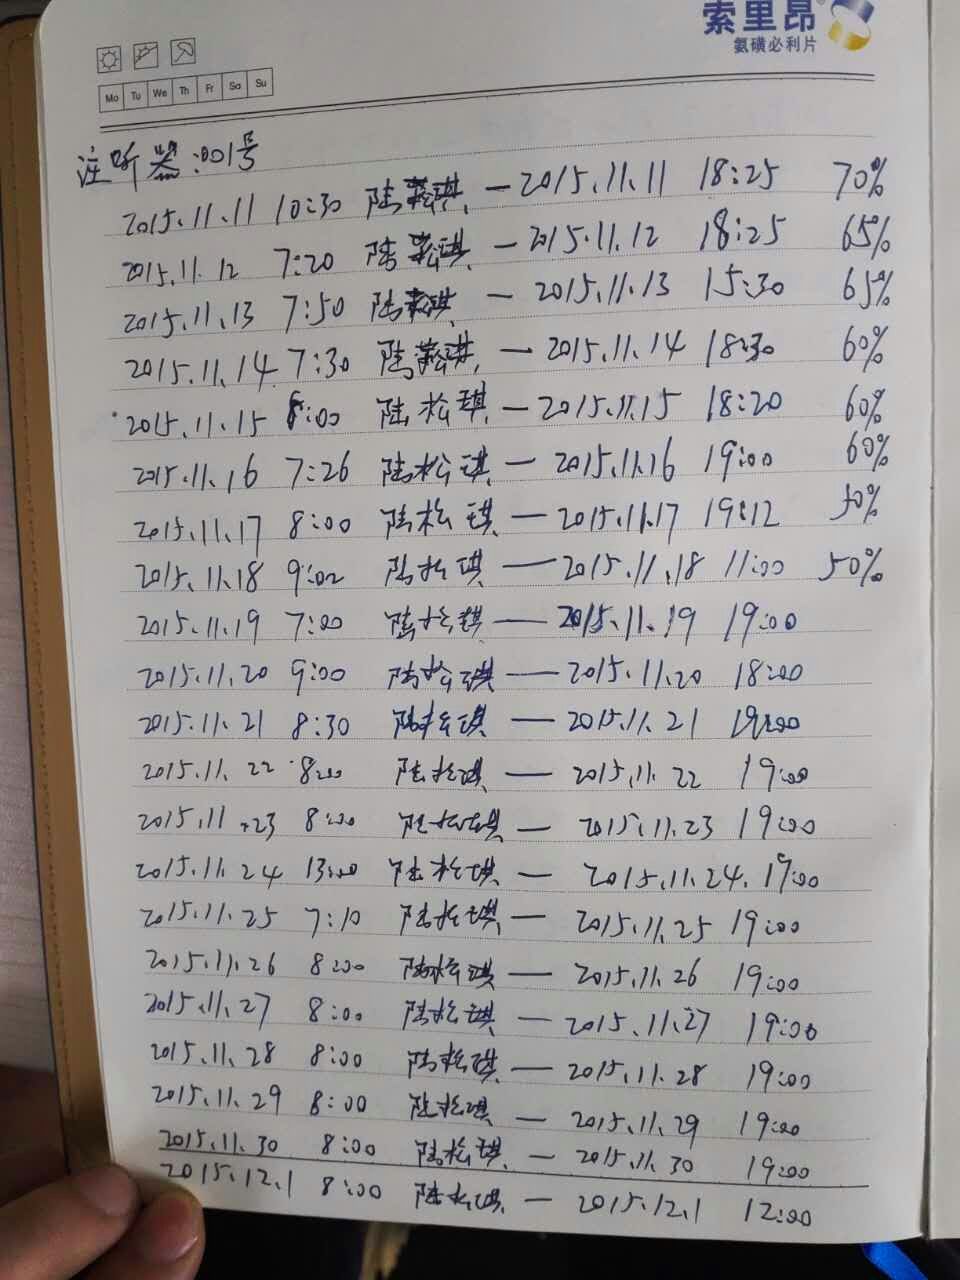 索里昂
氨磺必利片
Mo Tu We Th Fr Sa Su
注听器:001号
2015.11.11 10:30 陆菘琪 — 2015.11.11 18:25 70%
2015.11.12 7:20 陆菘琪 — 2015.11.12 18:25 65%
2015.11.13 7:50 陆菘琪 — 2015.11.13 15:30 65%
2015.11.14 7:30 陆菘琪 — 2015.11.14 18:30 60%
2015.11.15 8:00 陆松琪 — 2015.11.15 18:20 60%
2015.11.16 7:26 陆松琪 — 2015.11.16 19:00 60%
2015.11.17 8:00 陆松琪 — 2015.11.17 19:12 50%
2015.11.18 9:02 陆松琪 — 2015.11.18 11:00 50%
2015.11.19 7:00 陆松琪 — 2015.11.19 19:00
2015.11.20 9:00 陆松琪 — 2015.11.20 18:00
2015.11.21 8:30 陆松琪 — 2015.11.21 19:00
2015.11.22 8:00 陆松琪 — 2015.11.22 19:00
2015.11.23 8:00 陆松琪 — 2015.11.23 19:00
2015.11.24 13:00 陆松琪 — 2015.11.24. 19:00
2015.11.25 7:10 陆松琪 — 2015.11.25 19:00
2015.11.26 8:00 陆松琪 — 2015.11.26 19:00
2015.11.27 8:00 陆松琪 — 2015.11.27 19:00
2015.11.28 8:00 陆松琪 — 2015.11.28 19:00
2015.11.29 8:00 陆松琪 — 2015.11.29 19:00
2015.11.30 8:00 陆松琪 — 2015.11.30 19:00
2015.12.1 8:00 陆松琪 — 2015.12.1 12:00